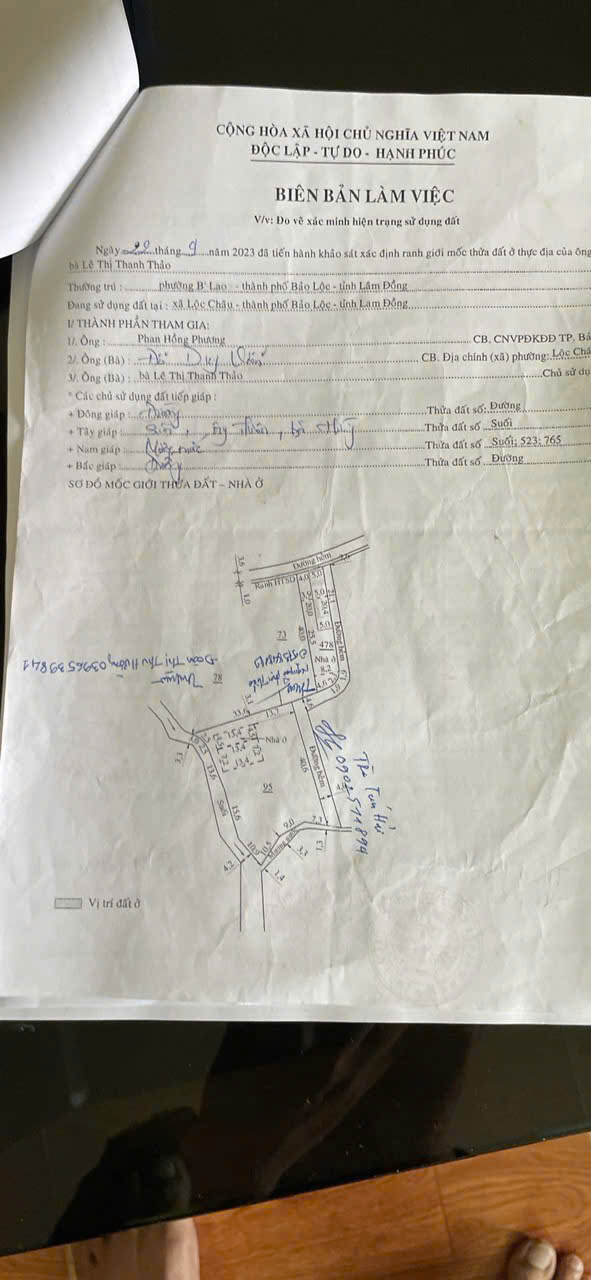 CỘNG HÒA XÃ HỘI CHỦ NGHĨA VIỆT NAM
ĐỘC LẬP - TỰ DO - HẠNH PHÚC
BIÊN BẢN LÀM VIỆC
V/v: Đo vẽ xác minh hiện trạng sử dụng đất
Ngày 22 tháng 9 năm 2023 đã tiến hành khảo sát xác định ranh giới mốc thửa đất ở thực địa của ông
bà Lê Thị Thanh Thảo
Thường trú : phường B' Lao - thành phố Bảo Lộc - tỉnh Lâm Đồng
Đang sử dụng đất tại : xã Lộc Châu - thành phố Bảo Lộc - tỉnh Lam Đồng
I/ THÀNH PHẦN THAM GIA:
1/. Ông : Phan Hồng Phương CB. CNVPĐKĐĐ TP. Bả
2/. Ông (Bà) : CB. Địa chính (xã) phường: Lộc Châ
3/. Ông (Bà) : bà Lê Thị Thanh Thảo Chủ sử dụ
* Các chủ sử dụng đất tiếp giáp :
+ Đông giáp : Đường Thửa đất số: Đường
+ Tây giáp : Suối, Thửa đất số Suối
+ Nam giáp : Mương nước Thửa đất số Suối; 523; 765
+ Bắc giáp : Đường Thửa đất số Đường
SƠ ĐỒ MỐC GIỚI THỬA ĐẤT – NHÀ Ở
Đường hẻm
3,6
1,0
Ranh HTSD 4,0 5,0
3,9 5,0
20,0 20,4
40,0
25,5
5,0
73
478
Nhà ở
8,2
4,6
Đường hẻm
78
Đoàn Thị Thu Hường 0396539841
3,1
33,6
13,7
4,6
Nhà ở
13,4
3,3
13,6
15,6
Suối
95
Đường hẻm
40,6
Trần Tuấn Hải
0902511894
9,0
7,3
10,9
10,5
Mương nước
3,3
1,3
4,2
1,4
Vị trí đất ở